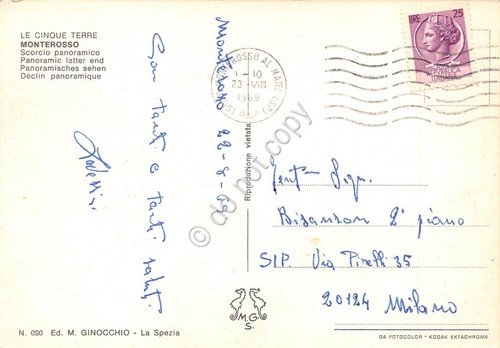 LE CINQUE TERRE
MONTEROSSO
Scorcio panoramico
Panoramic latter end
Panoramisches sehen
Déclin panoramique
Monterosso 22-8-69
Con tanti e tanti saluti.
MONTEROSSO AL MARE (SP)
1-10
23-VIII
1969
LIRE 25
Riproduzione vietata
do not copy
Gent.ma Sign.
Bisanson 2° piano
S.I.P. Via Pirelli 35
20124 Milano
M.G.
S.
N. 090 Ed. M. GINOCCHIO - La Spezia
DA FOTOCOLOR - KODAK EKTACHROME